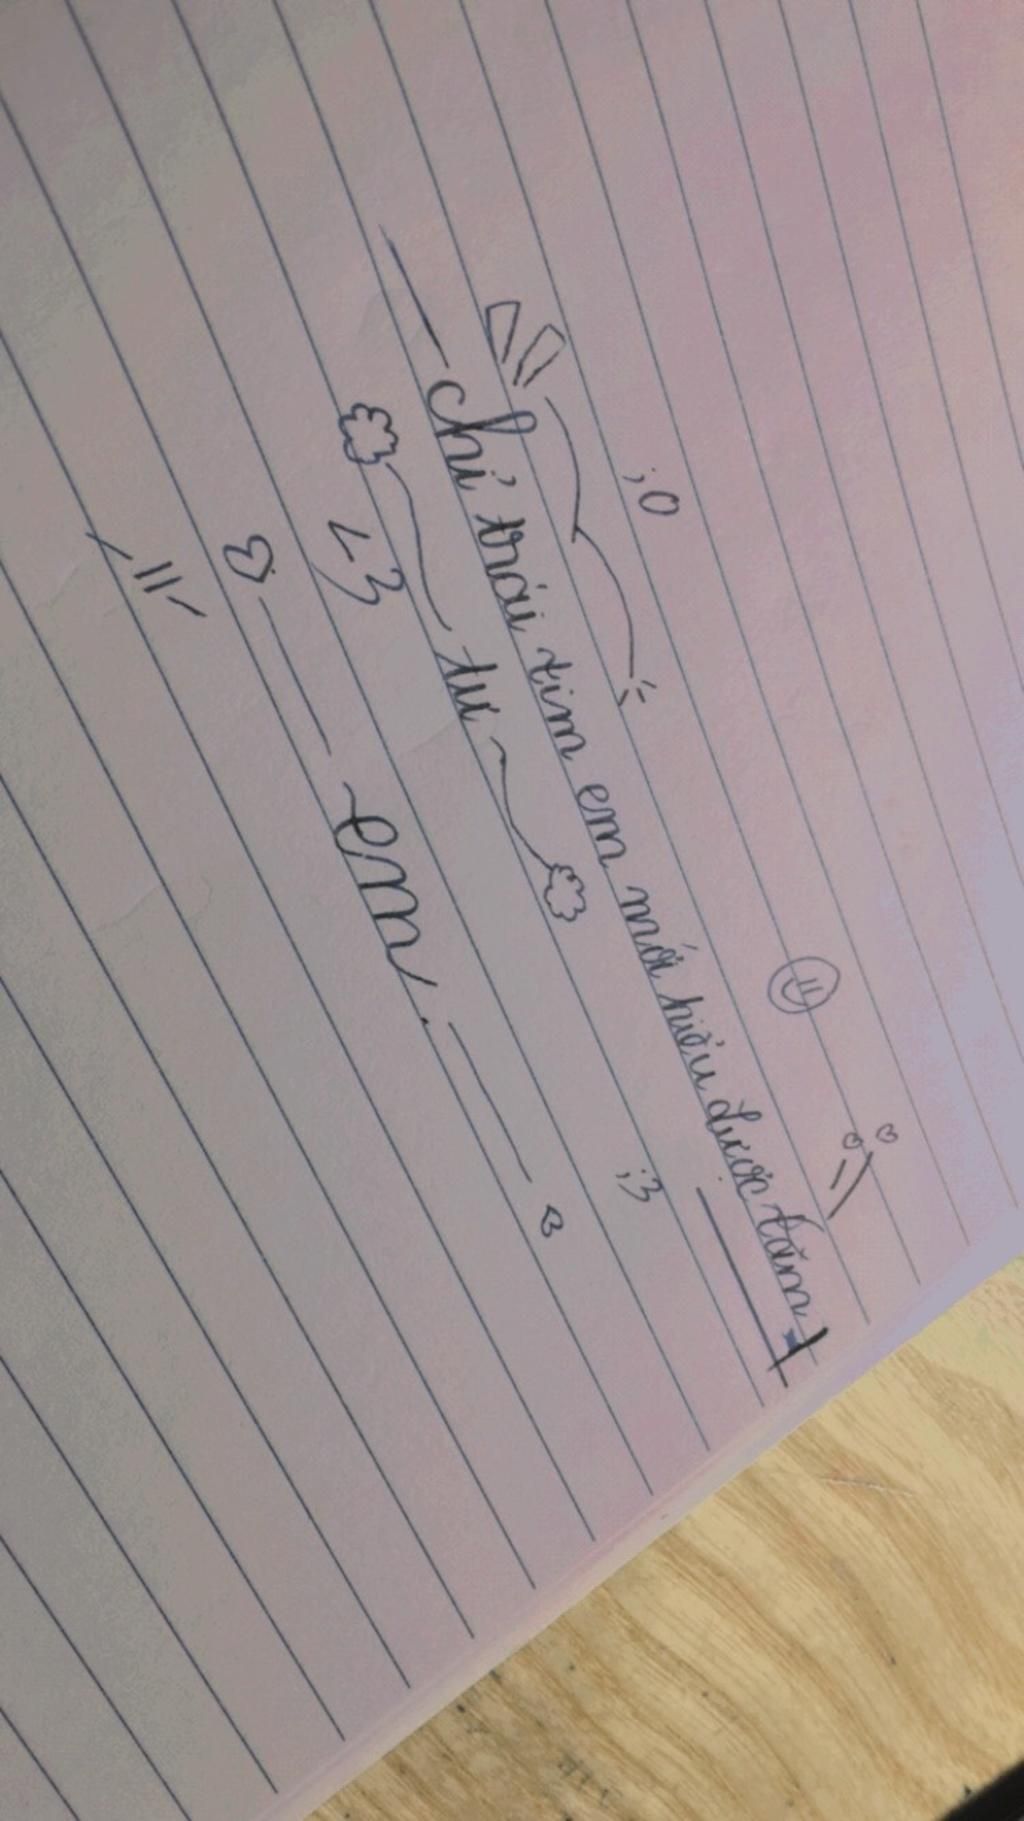 ;0
chỉ trái tim em mới hiểu được tâm
tư
<3
;3
em.